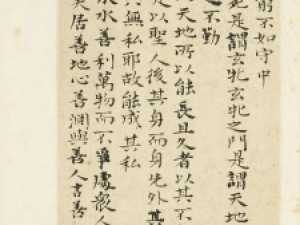 窮不如守中
死是謂玄牝玄牝之門是謂天地
之不勤
天地所以能長且久者以其不
是以聖人後其身而身先外其
其無私耶故能成其私
水水善利萬物而不爭處衆人
矣居善地心善淵與善人言善